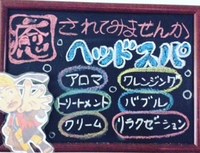 癒されてみませんか
ヘッドスパ
アロマ クレンジング
トリートメント バブル
クリーム リラクゼーション